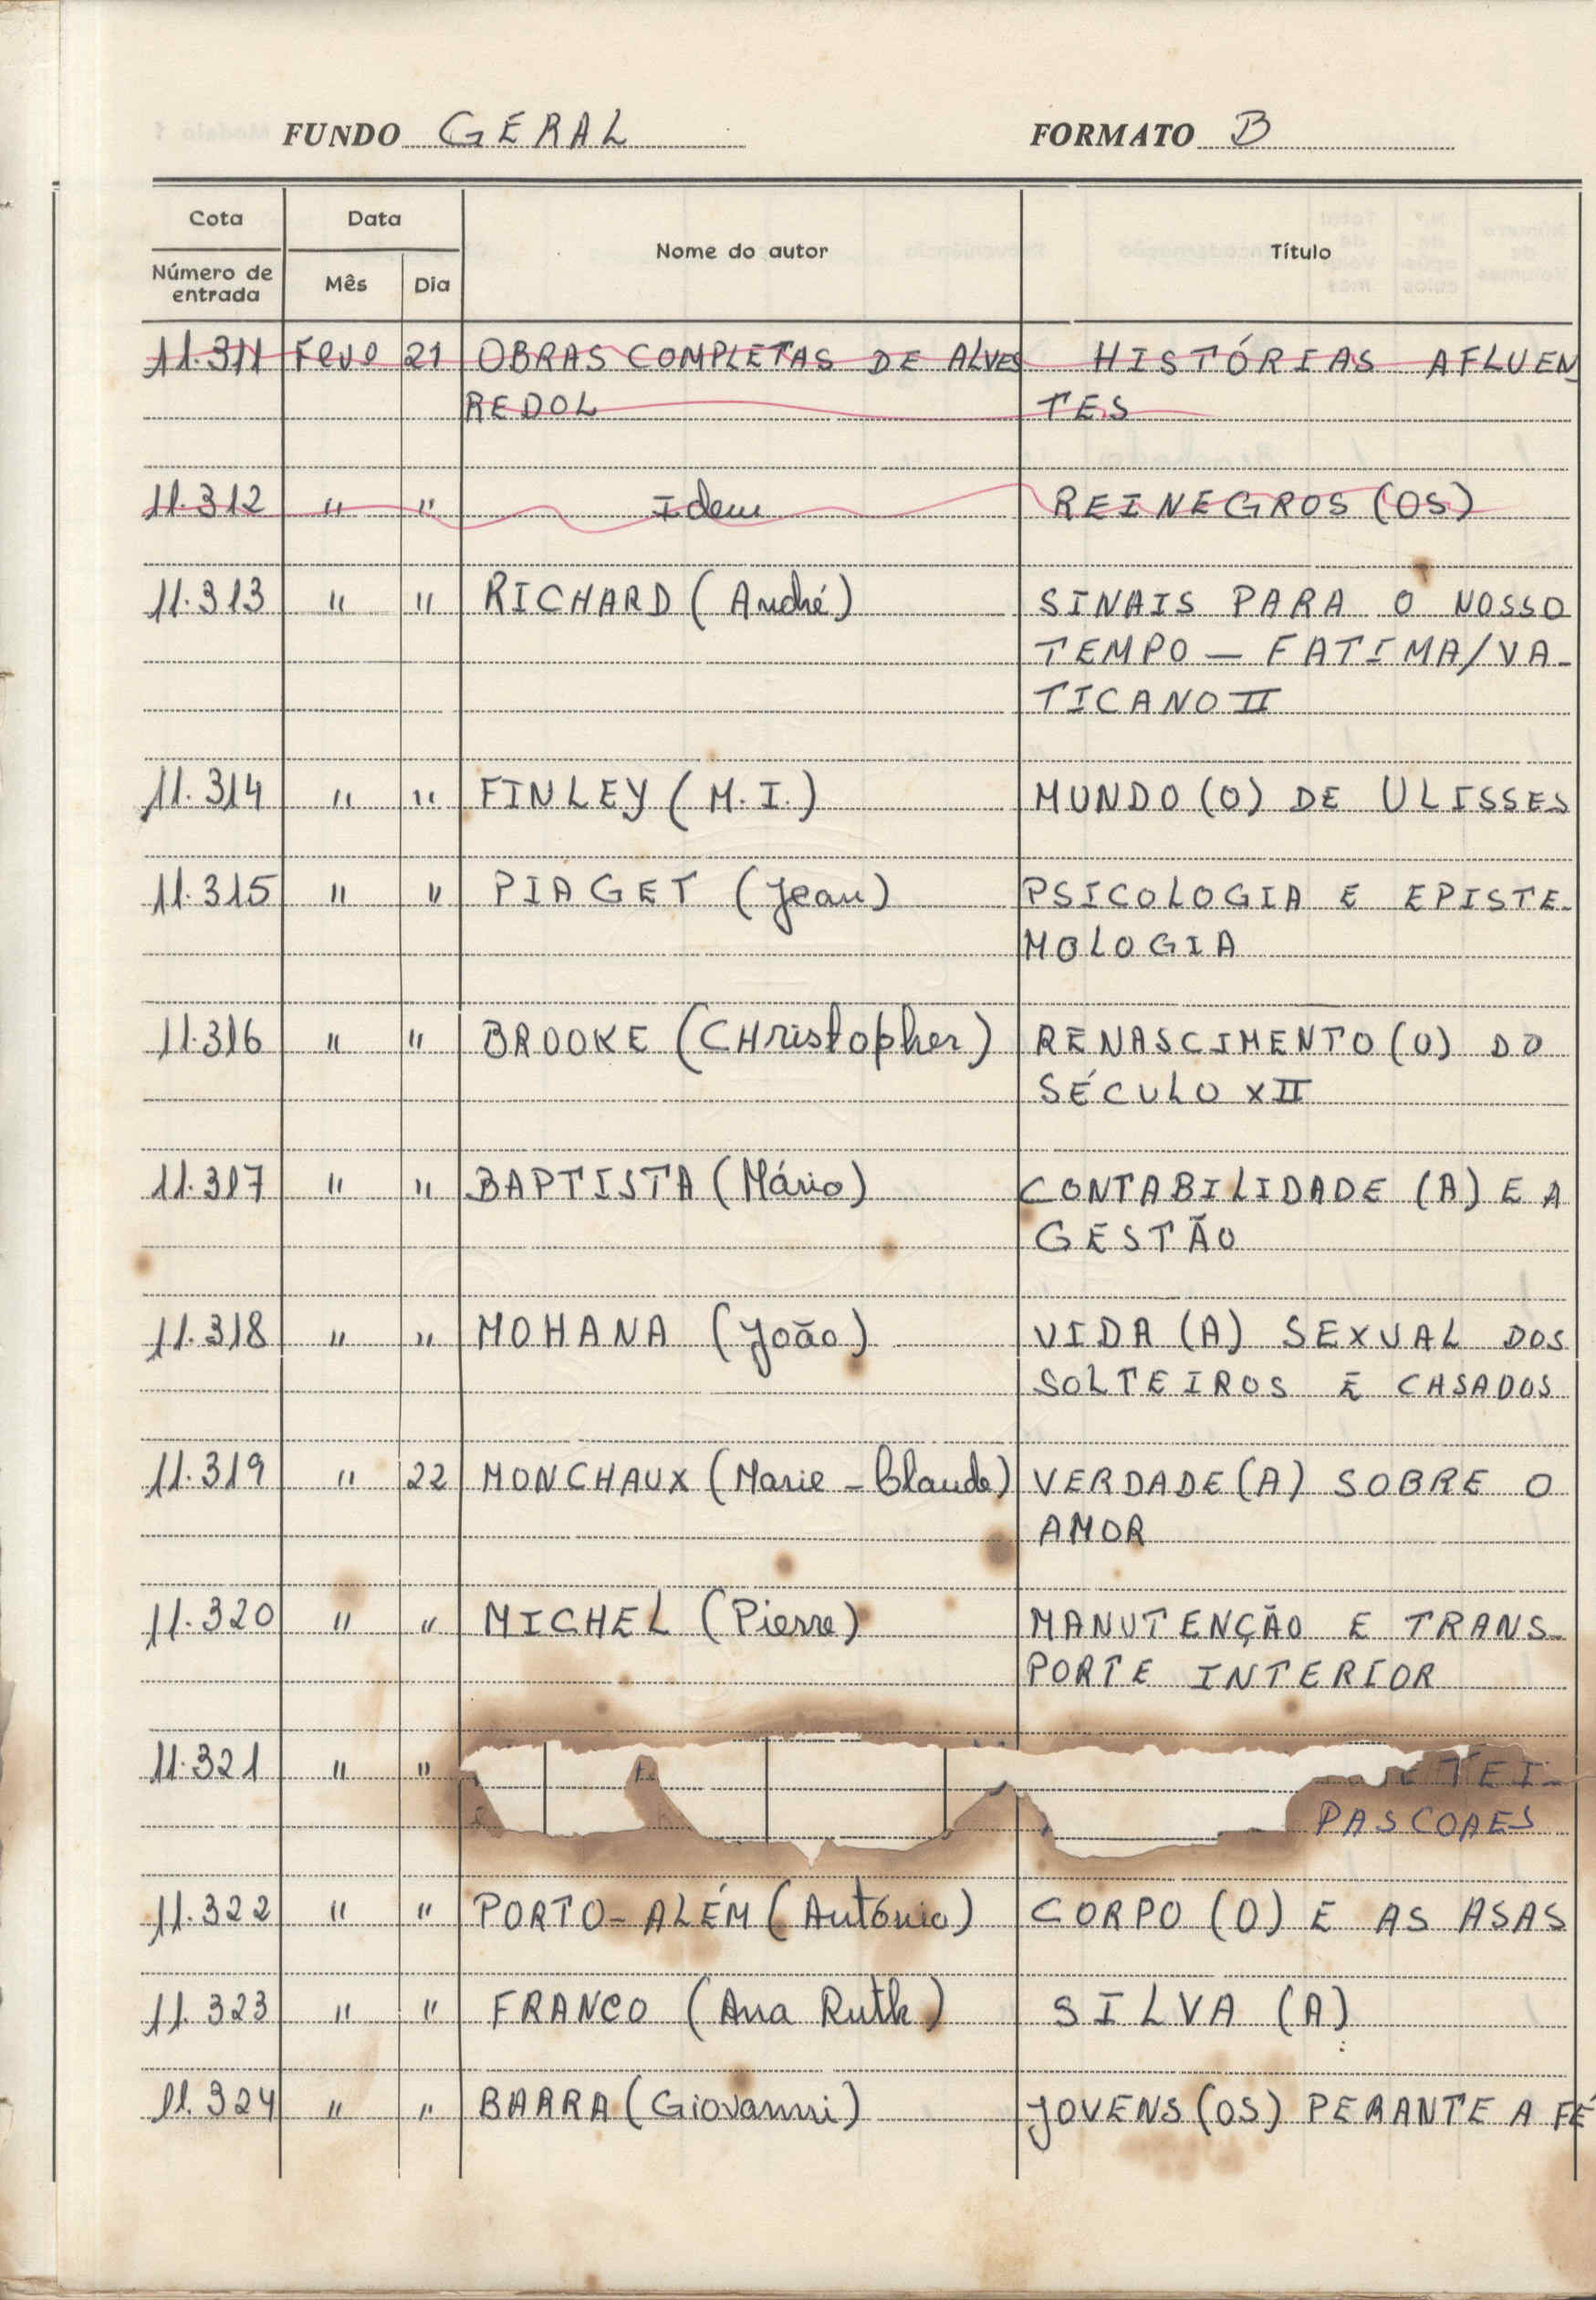 FUNDO GERAL FORMATO B
Cota Data Nome do autor Título
Número de entrada Mês Dia
11.311 Fevº 21 OBRAS COMPLETAS DE ALVES HISTÓRIAS AFLUEN
REDOL TES
11.312 " " Idem REINEGROS (OS)
11.313 " " RICHARD (André) SINAIS PARA O NOSSO
TEMPO — FATIMA/VA-
TICANO II
11.314 " " FINLEY (M.I.) MUNDO (O) DE ULISSES
11.315 " " PIAGET (Jean) PSICOLOGIA E EPISTE-
MOLOGIA
11.316 " " BROOKE (CHristopher) RENASCIMENTO (O) DO
SÉCULO XII
11.317 " " BAPTISTA (Mário) CONTABILIDADE (A) E A
GESTÃO
11.318 " " MOHANA (João) VIDA (A) SEXUAL DOS
SOLTEIROS E CASADOS
11.319 " 22 MONCHAUX (Marie-Claude) VERDADE (A) SOBRE O
AMOR
11.320 " " MICHEL (Pierre) MANUTENÇÃO E TRANS-
PORTE INTERIOR
11.321 " " TEI-
PASCOAES
11.322 " " PORTO-ALÉM (António) CORPO (O) E AS ASAS
11.323 " " FRANCO (Ana Ruth) SILVA (A)
11.324 " " BARRA (Giovanni) JOVENS (OS) PERANTE A FÉ